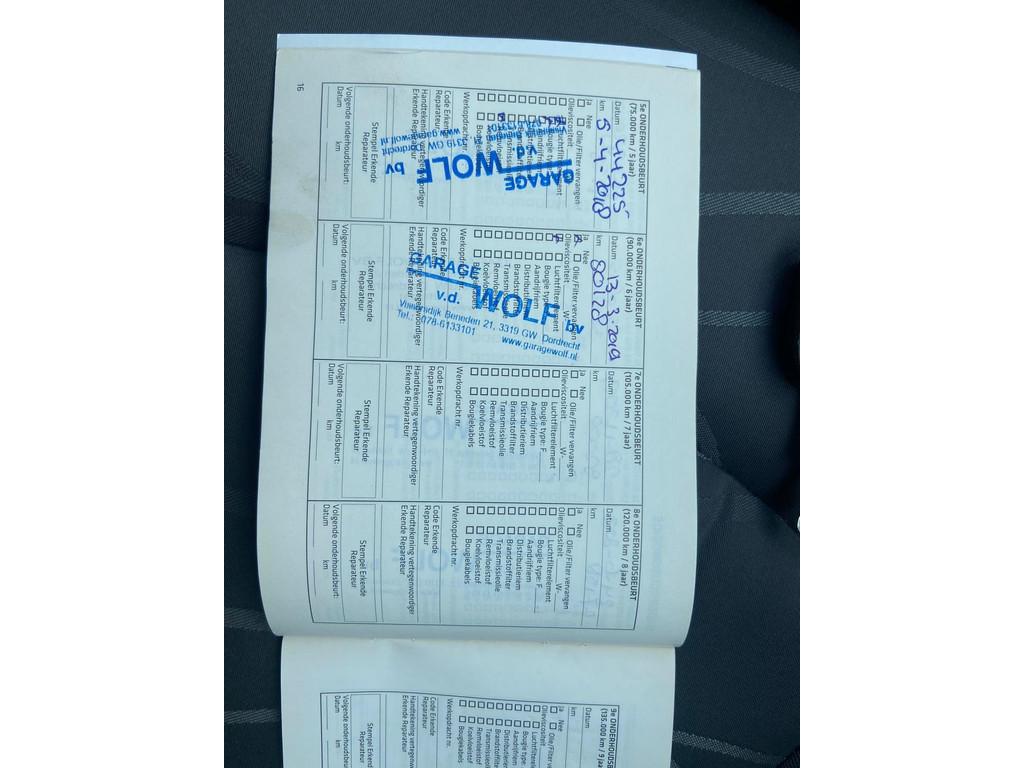 5e ONDERHOUDSBEURT
(75.000 km / 5 jaar)
Datum
44225
km 5-4-2018
Ja Nee
Olie/Filter vervangen
Olieviscositeit
Luchtfilterelement
Bougie type
Aandrijfriem
Werkopdracht nr.
Code Erkende
Reparateur
Handtekening vertegenwoordiger
Erkende Reparateur
Stempel Erkende
Reparateur
Volgende onderhoudsbeurt:
Datum km
GARAGE
v.d. WOLF bv
3319 GW Dordrecht
www.garagewolf.nl
6e ONDERHOUDSBEURT
(90.000 km / 6 jaar)
Datum 13-3-2019
km 80128
Ja Nee
Olie/Filter vervangen
Olieviscositeit W-
Luchtfilterelement
Bougie type
Aandrijfriem
Distributieriem
Brandstoffilter
Transmissieolie
Remvloeistof
Koelvloeistof
Bougiekabels
Werkopdracht nr.
Code Erkende
Reparateur
Handtekening vertegenwoordiger
Erkende Reparateur
Stempel Erkende
Reparateur
Volgende onderhoudsbeurt:
Datum km
GARAGE
v.d. WOLF bv
Beneden 21, 3319 GW Dordrecht
Tel.: 078-6133101
www.garagewolf.nl
7e ONDERHOUDSBEURT
(105.000 km / 7 jaar)
Datum
km
Ja Nee
Olie/Filter vervangen
Olieviscositeit W-
Luchtfilterelement
Bougie type: F
Aandrijfriem
Distributieriem
Brandstoffilter
Transmissieolie
Remvloeistof
Koelvloeistof
Bougiekabels
Werkopdracht nr.
Code Erkende
Reparateur
Handtekening vertegenwoordiger
Erkende Reparateur
Stempel Erkende
Reparateur
Volgende onderhoudsbeurt:
Datum km
8e ONDERHOUDSBEURT
(120.000 km / 8 jaar)
Datum
km
Ja Nee
Olie/Filter vervangen
Olieviscositeit W-
Luchtfilterelement
Bougie type: F
Aandrijfriem
Distributieriem
Brandstoffilter
Transmissieolie
Remvloeistof
Koelvloeistof
Bougiekabels
Werkopdracht nr.
Code Erkende
Reparateur
Handtekening vertegenwoordiger
Erkende Reparateur
Stempel Erkende
Reparateur
Volgende onderhoudsbeurt:
Datum km
16
9e ONDERHOUDSB
(135.000 km / 9 jaar
Datum
km
Ja Nee
Olie/Filter ve
Olieviscositeit
Luchtfiltere
Bougie type:
Aandrijfriem
Distributier
Brandstoffilt
Transmissieo
Remvloeistof
Koelvloeistof
Bougiekabels
Werkopdracht nr.
Code Erkende
Reparateur
Handtekening verteg
Erkende Reparateur
Stempel Er
Reparate
Volgende onderhouds
Datum